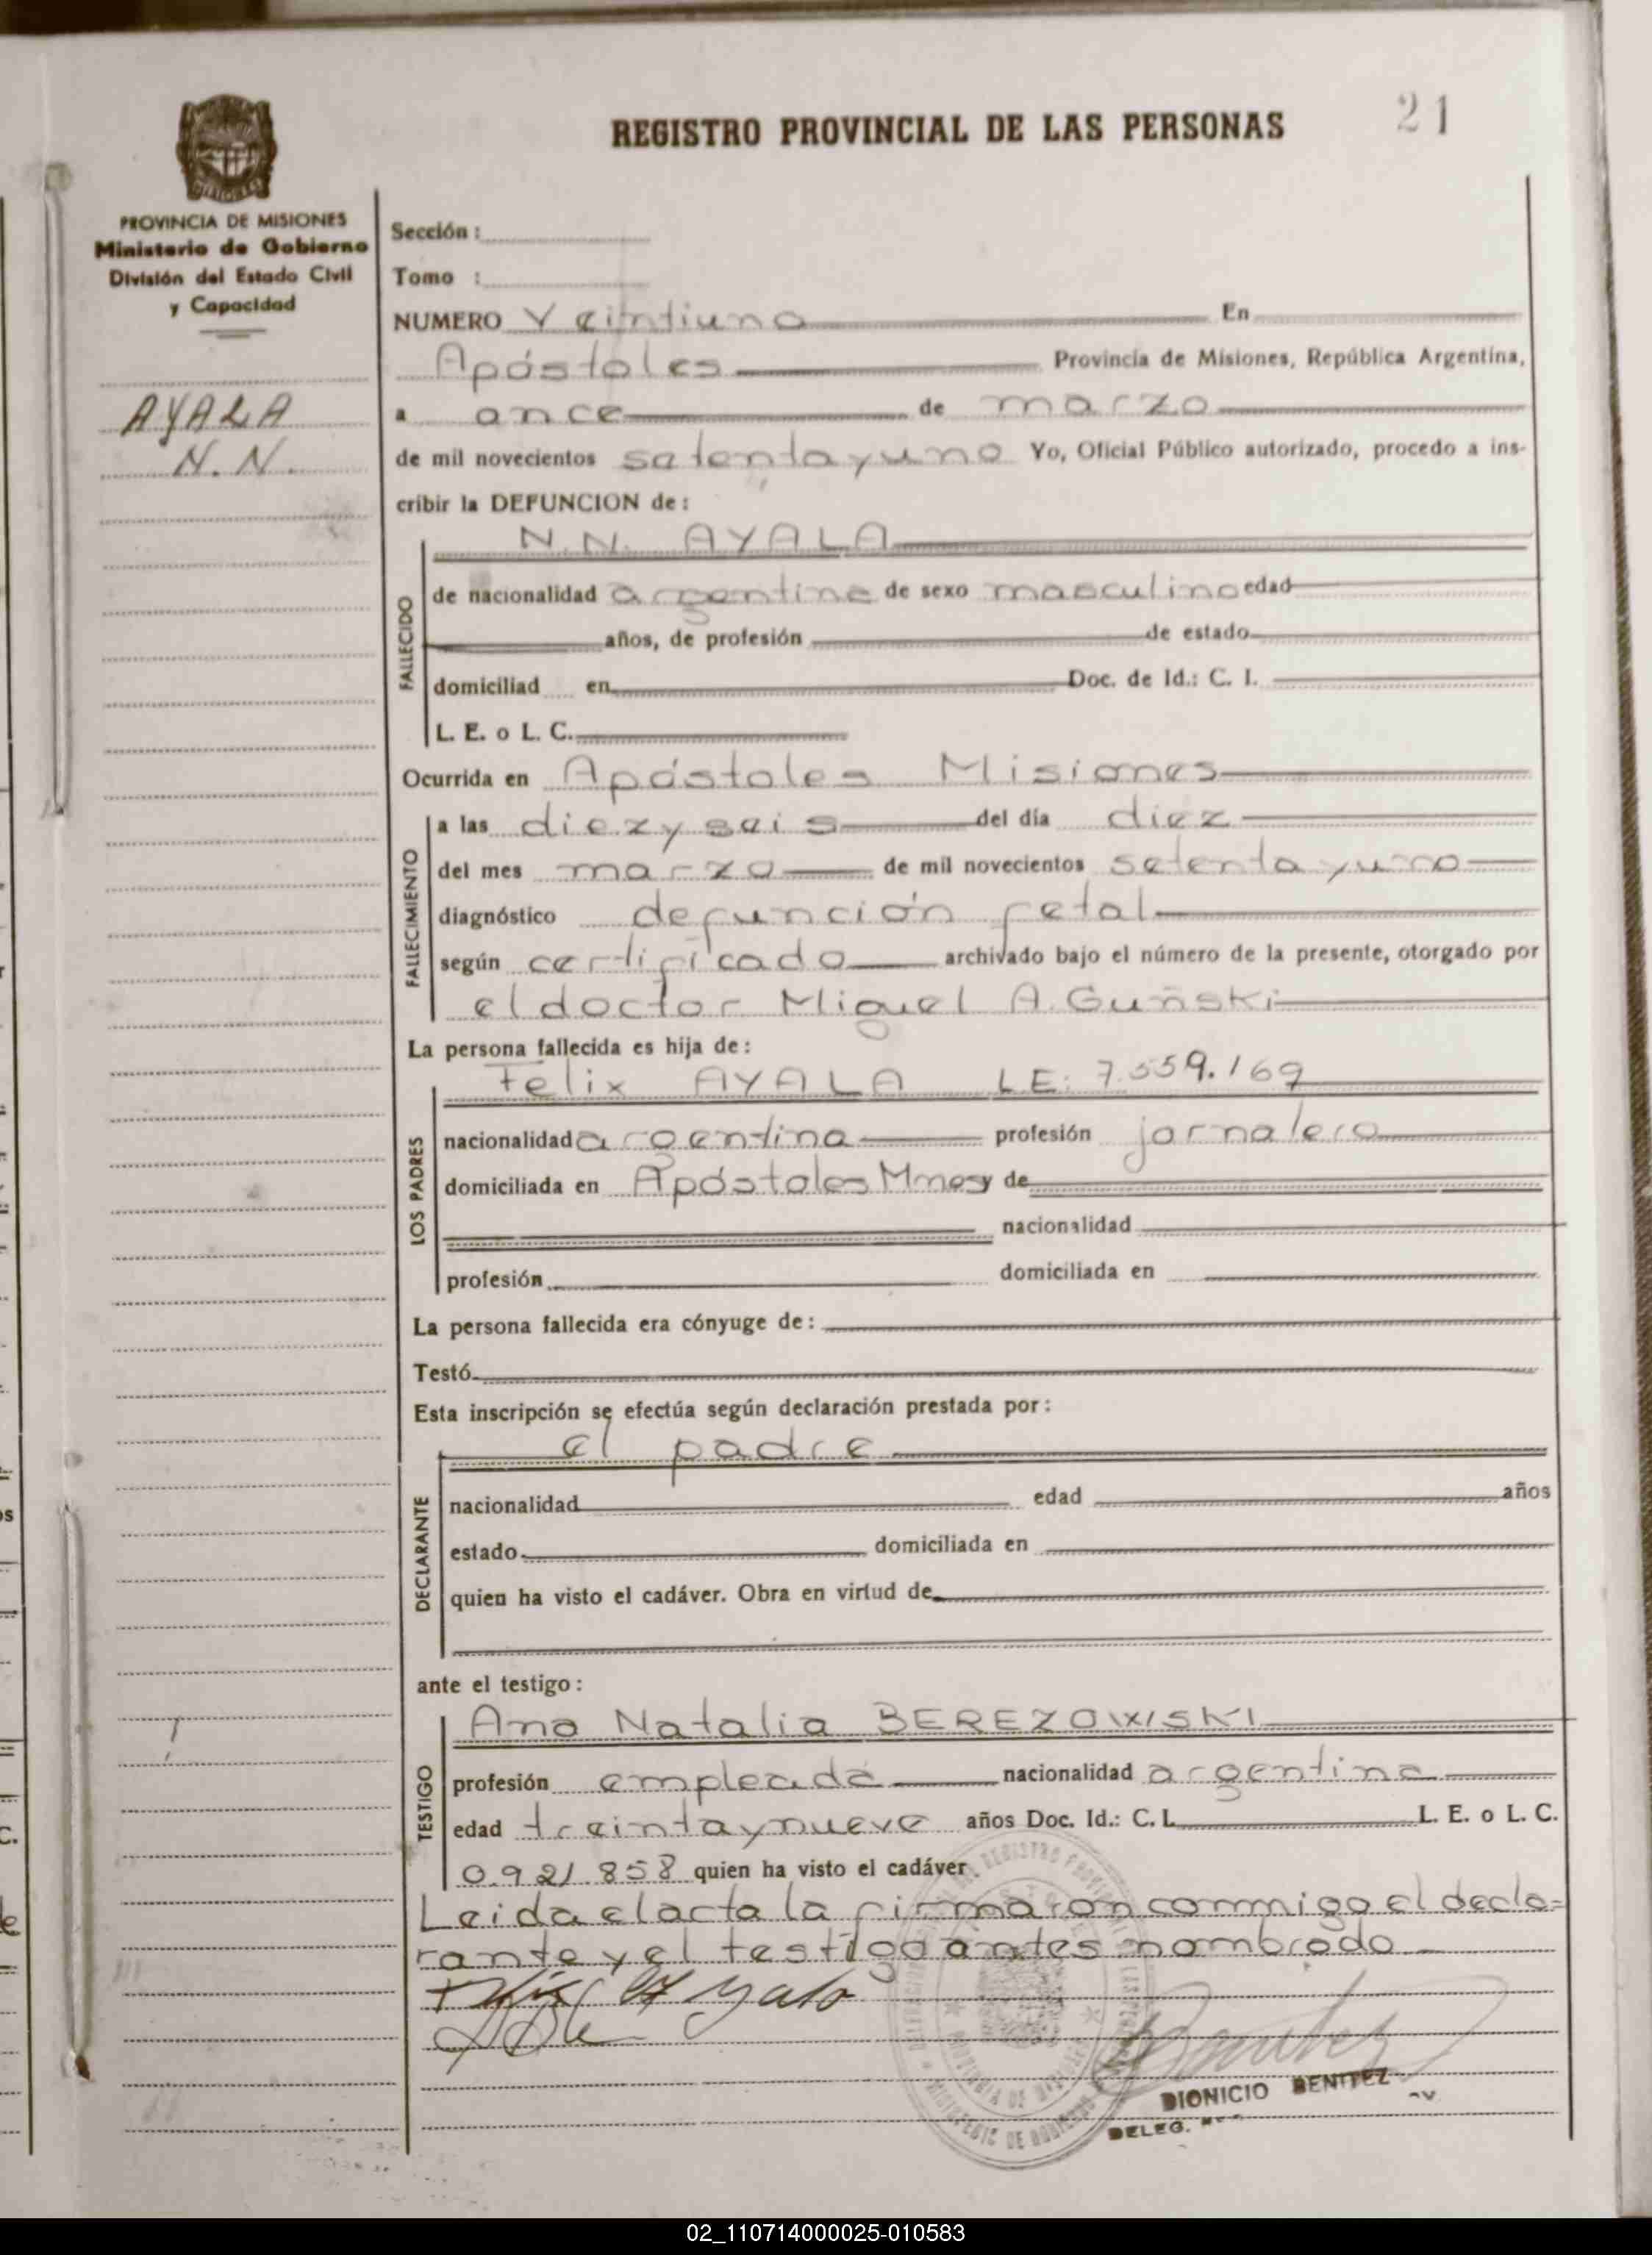 21
REGISTRO PROVINCIAL DE LAS PERSONAS
PROVINCIA DE MISIONES
Ministerio de Gobierno
División del Estado Civil
y Capacidad
AYALA
N.N.
Sección :
Tomo :
NUMERO Veintiuno En
Apóstoles Provincia de Misiones, República Argentina,
a once de marzo
de mil novecientos setenta y uno Yo, Oficial Público autorizado, procedo a ins-
cribir la DEFUNCION de :
N.N. AYALA
FALLECIDO
de nacionalidad argentina de sexo masculino edad
años, de profesión de estado
domiciliad en Doc. de Id.: C. I.
L. E. o L. C.
Ocurrida en Apóstoles Misiones
FALLECIMIENTO
a las diez y seis del día diez
del mes marzo de mil novecientos setenta y uno
diagnóstico defunción fetal
según certificado archivado bajo el número de la presente, otorgado por
el doctor Miguel A. Guñski
La persona fallecida es hija de :
LOS PADRES
Felix AYALA LE: 7.559.169
nacionalidad argentina profesión jornalero
domiciliada en Apóstoles Mnes y de
nacionalidad
profesión domiciliada en
La persona fallecida era cónyuge de :
Testó
Esta inscripción se efectúa según declaración prestada por :
el padre
DECLARANTE
nacionalidad edad años
estado domiciliada en
quien ha visto el cadáver. Obra en virtud de
ante el testigo :
TESTIGO
Ana Natalia BEREZOWISKI
profesión empleada nacionalidad argentina
edad treinta y nueve años Doc. Id.: C. I. L. E. o L. C.
0.921.858 quien ha visto el cadáver
Leida el acta la firmaron conmigo el decla=
rante y el testigo antes nombrado
DIONICIO BENITEZ
DELEG.
02_110714000025-010583